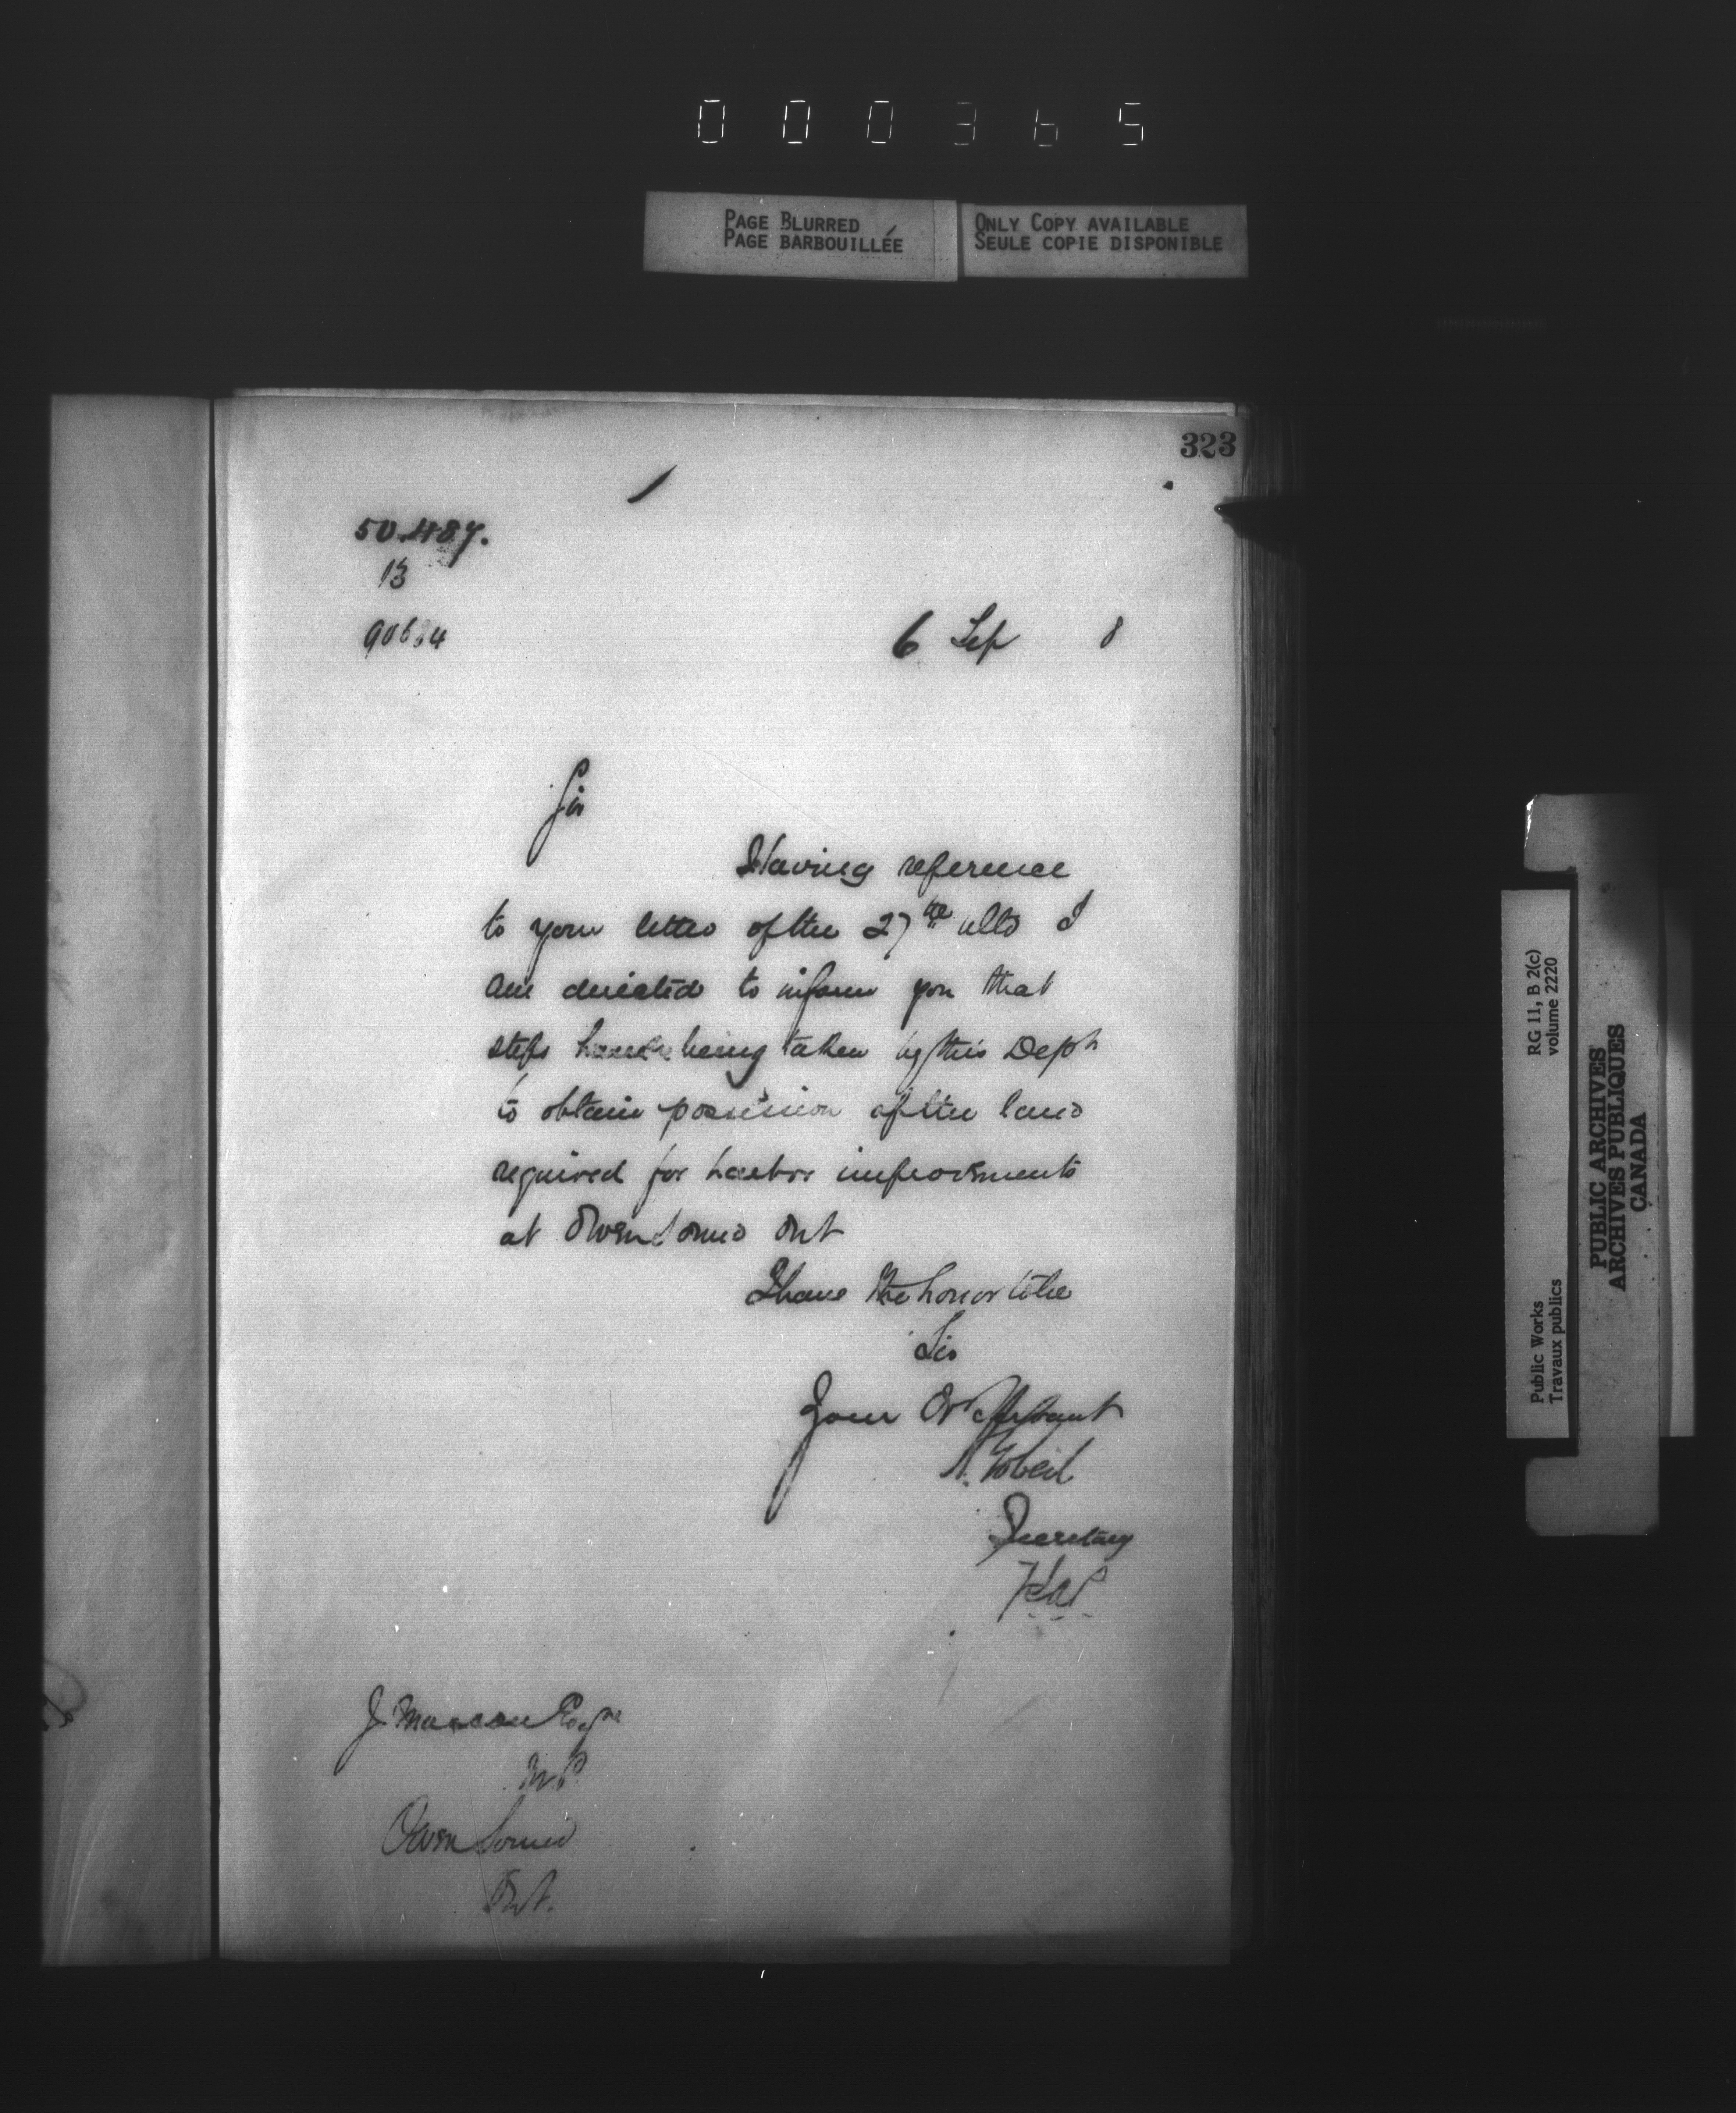 000365
PAGE BLURRED
PAGE BARBOUILLÉE
ONLY COPY AVAILABLE
SEULE COPIE DISPONIBLE
323
50.487.
13
90634
6 Sep 8
Sir
Having reference
to your letter of the 27th ulto I
am directed to inform you that
steps being taken by this Dept
to obtain possession of the land
required for harbor improvements
at Owen Sound Ont
I have the honor to be
Sir
Your Obt Servant
A. Gobeil
Secretary
J. Masson Esqre
M.P.
Owen Sound
Ont.
RG 11, B 2(c)
volume 2220
Public Works
Travaux publics
PUBLIC ARCHIVES
ARCHIVES PUBLIQUES
CANADA